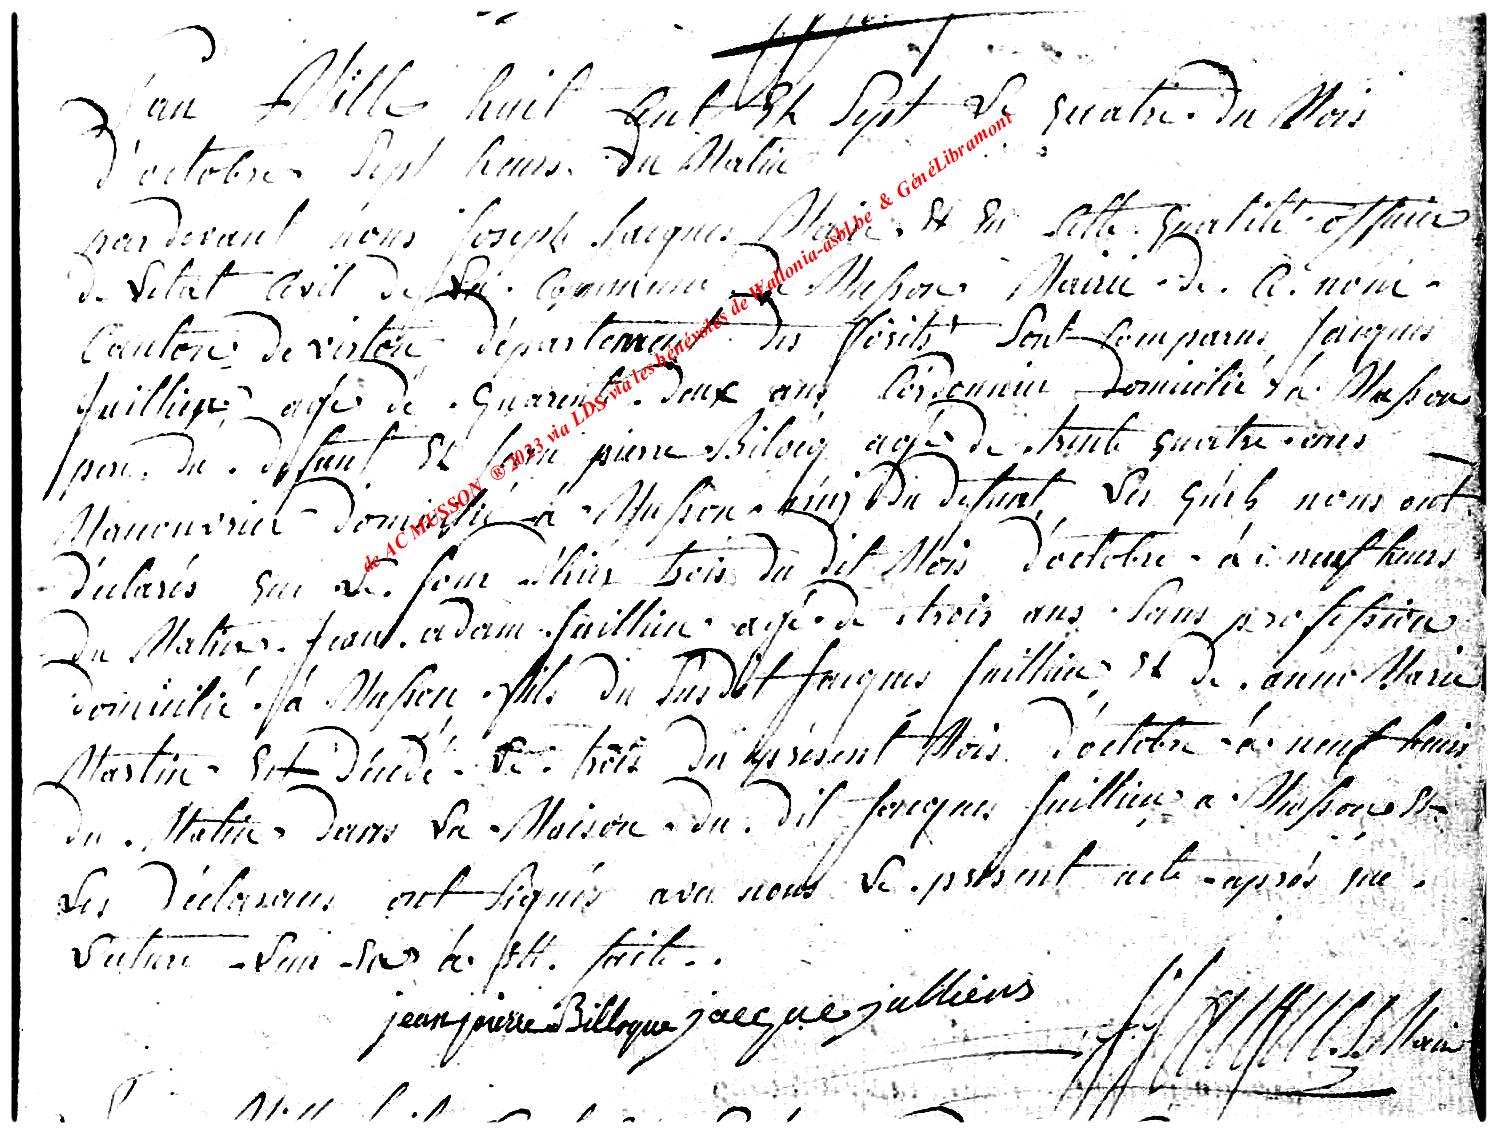 L'an Mille huit Cent Et Sept Le quatre du Mois
d'octobre Sept heurs du Matin
pardevant nous Joseph Jacques Maire Et En Cette qualité officier
de Letat Civil de La Commune de Musson Mairie de Ce nom
Canton de virton département des forêts Sont Comparus Jacques
Juillien agé de quarente deux ans Cordonnier Domicilié à Musson
pere du défunt Et Jean pierre Bilocq agé de trente quatre ans
Manouvrier domicilié à Musson amis du defunt Les quels nous ont
déclarés que Le Jour d'hier trois du dit Mois d'octobre à neuf heurs
du Matin Jean adam Juillien agé de trois ans Sans profession
domicilié à Musson fils du Susdit Jacques Juillien Et de anne Marie
Martin Est décédé Le trois du présent Mois d'octobre à neuf heurs
du Matin dans La Maison du dit Jacques Juillien a Musson Et
Les déclarans ont Signés avec nous Le présent acte après que
Lecture Leur En a Ett faite
jean pierre Billoque jacque julliens
Maire
de AC MUSSON ® 2023 via LDS via les bénévoles de Wallonia-asbl.be & GénéLibramont